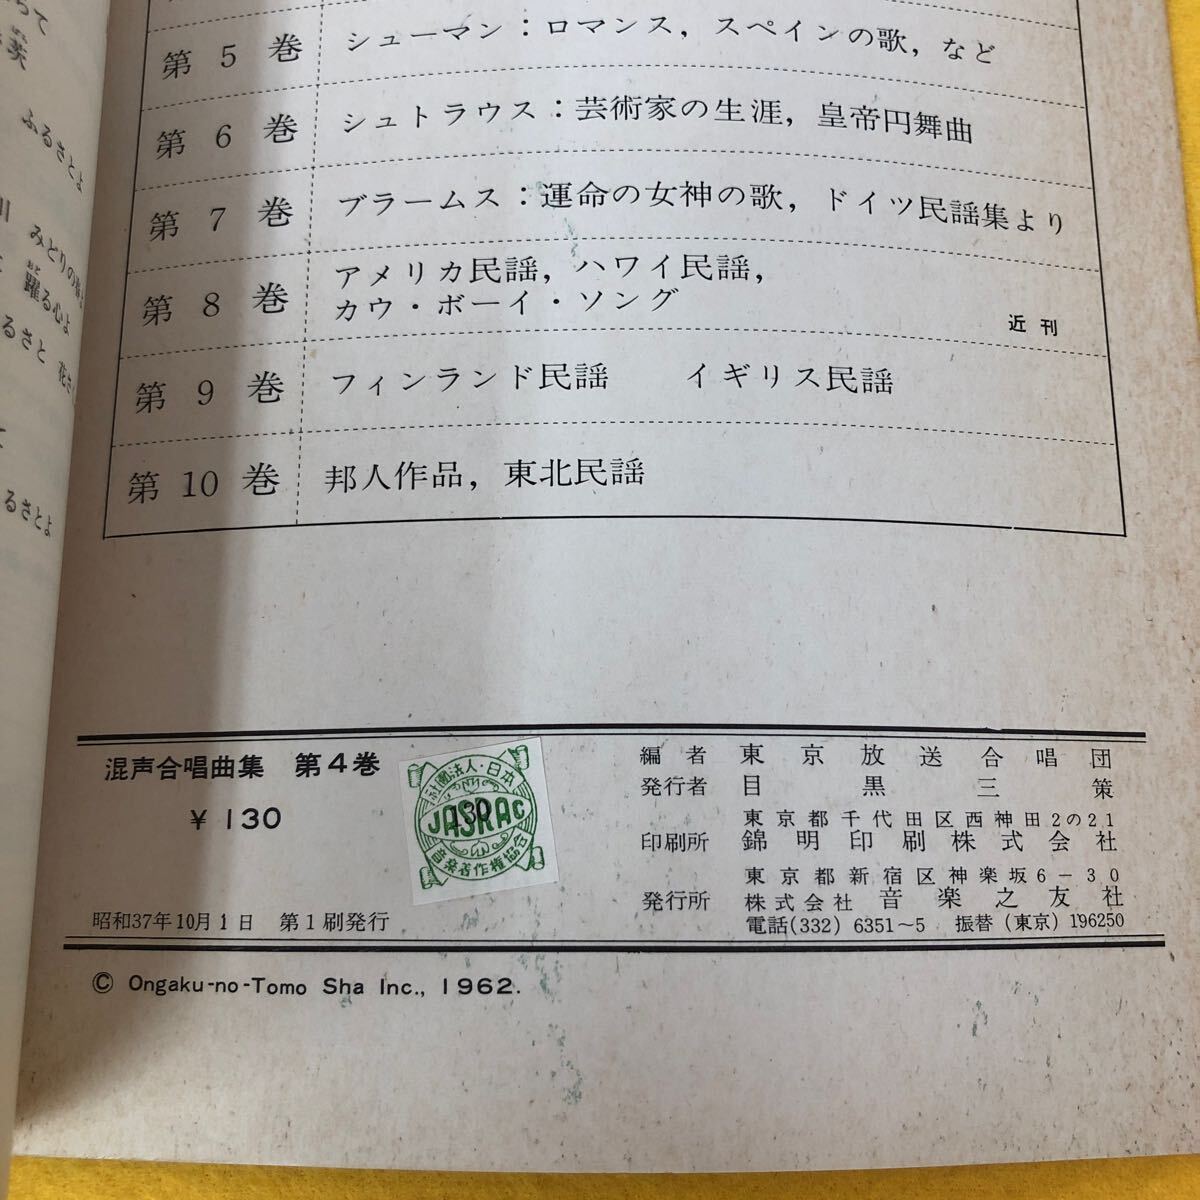 って
笑
ふるさとよ
川 みどりの
躍る心よ
るさと
て
るさとよ
第5巻 シューマン：ロマンス，スペインの歌，など
第6巻 シュトラウス：芸術家の生涯，皇帝円舞曲
第7巻 ブラームス：運命の女神の歌，ドイツ民謡集より
第8巻 アメリカ民謡，ハワイ民謡，
カウ・ボーイ・ソング
近刊
第9巻 フィンランド民謡 イギリス民謡
第10巻 邦人作品，東北民謡
混声合唱曲集 第4巻
¥130
社団法人・日本
JASRAC
130
音楽著作権協会
昭和37年10月1日 第1刷発行
編者 東京放送合唱団
発行者 目黒三策
東京都千代田区西神田2の21
印刷所 錦明印刷株式会社
東京都新宿区神楽坂6－30
発行所 株式会社 音楽之友社
電話(332) 6351～5 振替 (東京) 196250
© Ongaku-no-Tomo Sha Inc., 1962.